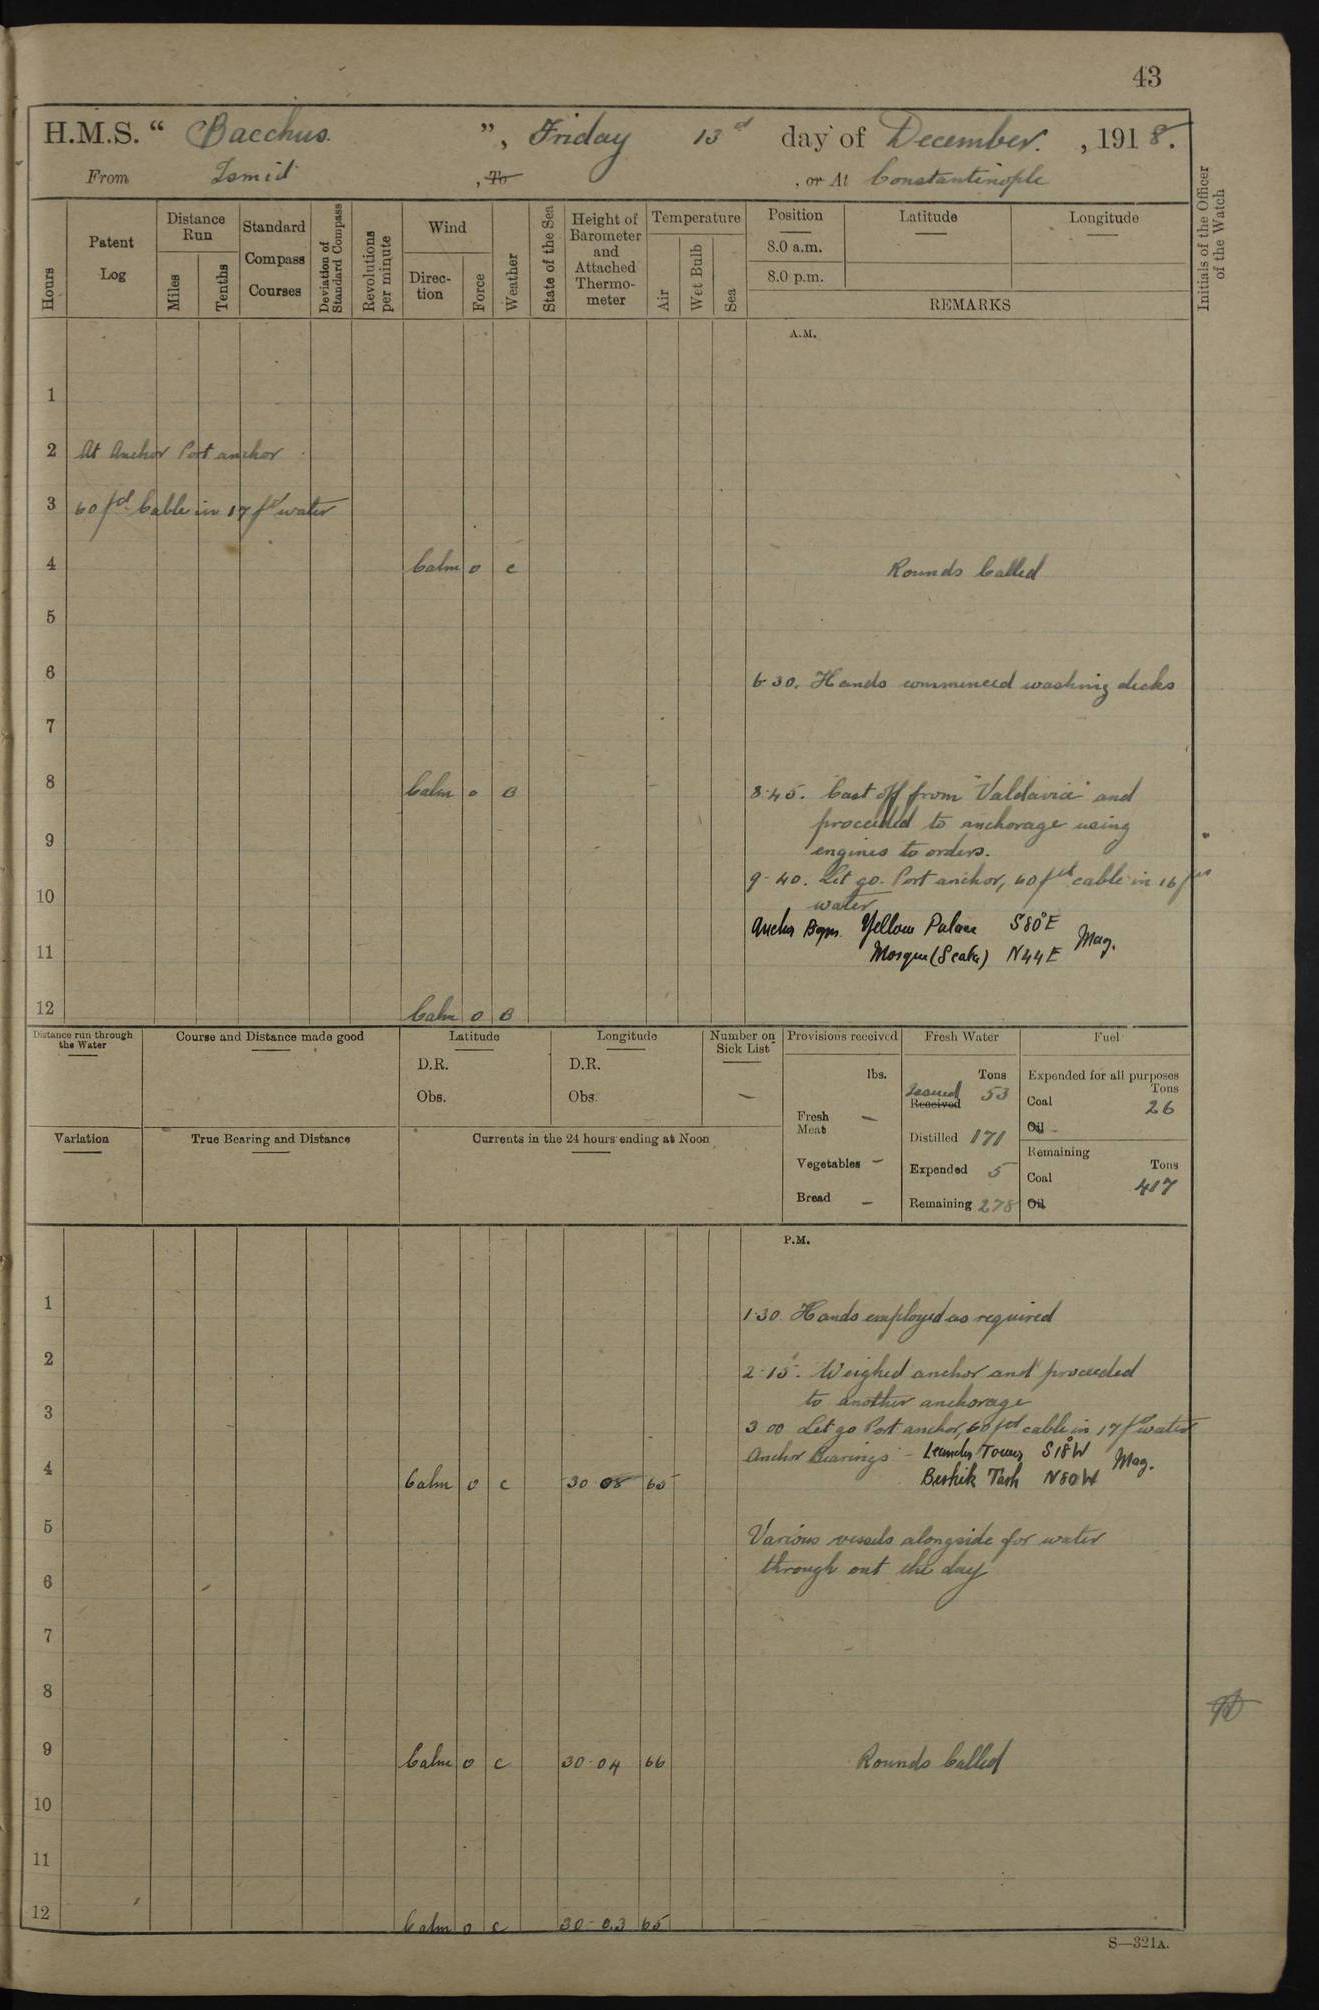 43
H.M.S. “ Bacchus. ”, Friday 13d day of December. , 1918.
From Ismid , To , or At Constantinople
Hours
Patent Log
Distance Run
Miles
Tenths
Standard Compass Courses
Deviation of Standard Compass
Revolutions per minute
Wind
Direc-tion
Force
Weather
State of the Sea
Height of Barometer and Attached Thermo-meter
Temperature
Air
Wet Bulb
Sea
Position
8.0 a.m.
8.0 p.m.
Latitude
Longitude
REMARKS
Initials of the Officer of the Watch
A.M.
1
2 At Anchor Port anchor
3 60 fd Cable in 17 fd water
4 Calm 0 c Rounds Called
5
6 6-30. Hands commenced washing decks
7
8 Calm 0 B 8.45. Cast off from "Valdavia" and
proceeded to anchorage using
9 engines to orders.
9-40. Let go. Port anchor, 60 fd cable in 16 fms
10 water
Anchr Bgs. Yellow Palace S80°E
11 Mosque (Scala) N44E Mag.
12 Calm 0 B
Distance run through the Water
Course and Distance made good
Latitude
D.R.
Obs.
Longitude
D.R.
Obs.
Number on Sick List
—
Provisions received
lbs.
Fresh Meat —
Vegetables —
Bread —
Fresh Water
Tons
Issued
Received 53
Distilled 171
Expended 5
Remaining 278
Fuel
Expended for all purposes
Tons
Coal 26
Oil
Remaining
Tons
Coal 417
Oil
Variation
True Bearing and Distance
Currents in the 24 hours ending at Noon
P.M.
1 1-30 Hands employed as required
2 2-15. Weighed anchor and proceeded
to another anchorage
3 3 00 Let go Port anchor, 60 fd cable in 17 fd water
Anchor Bearings - Leander Tower S18°W
4 Calm 0 c 30 08 65 Beshik Tash N80W Mag.
5 Various vessels alongside for water
through out the day
6
7
8
9 Calm 0 c 30-04 66 Rounds Called
10
11
12 Calm 0 c 30-03 65
S—321A.